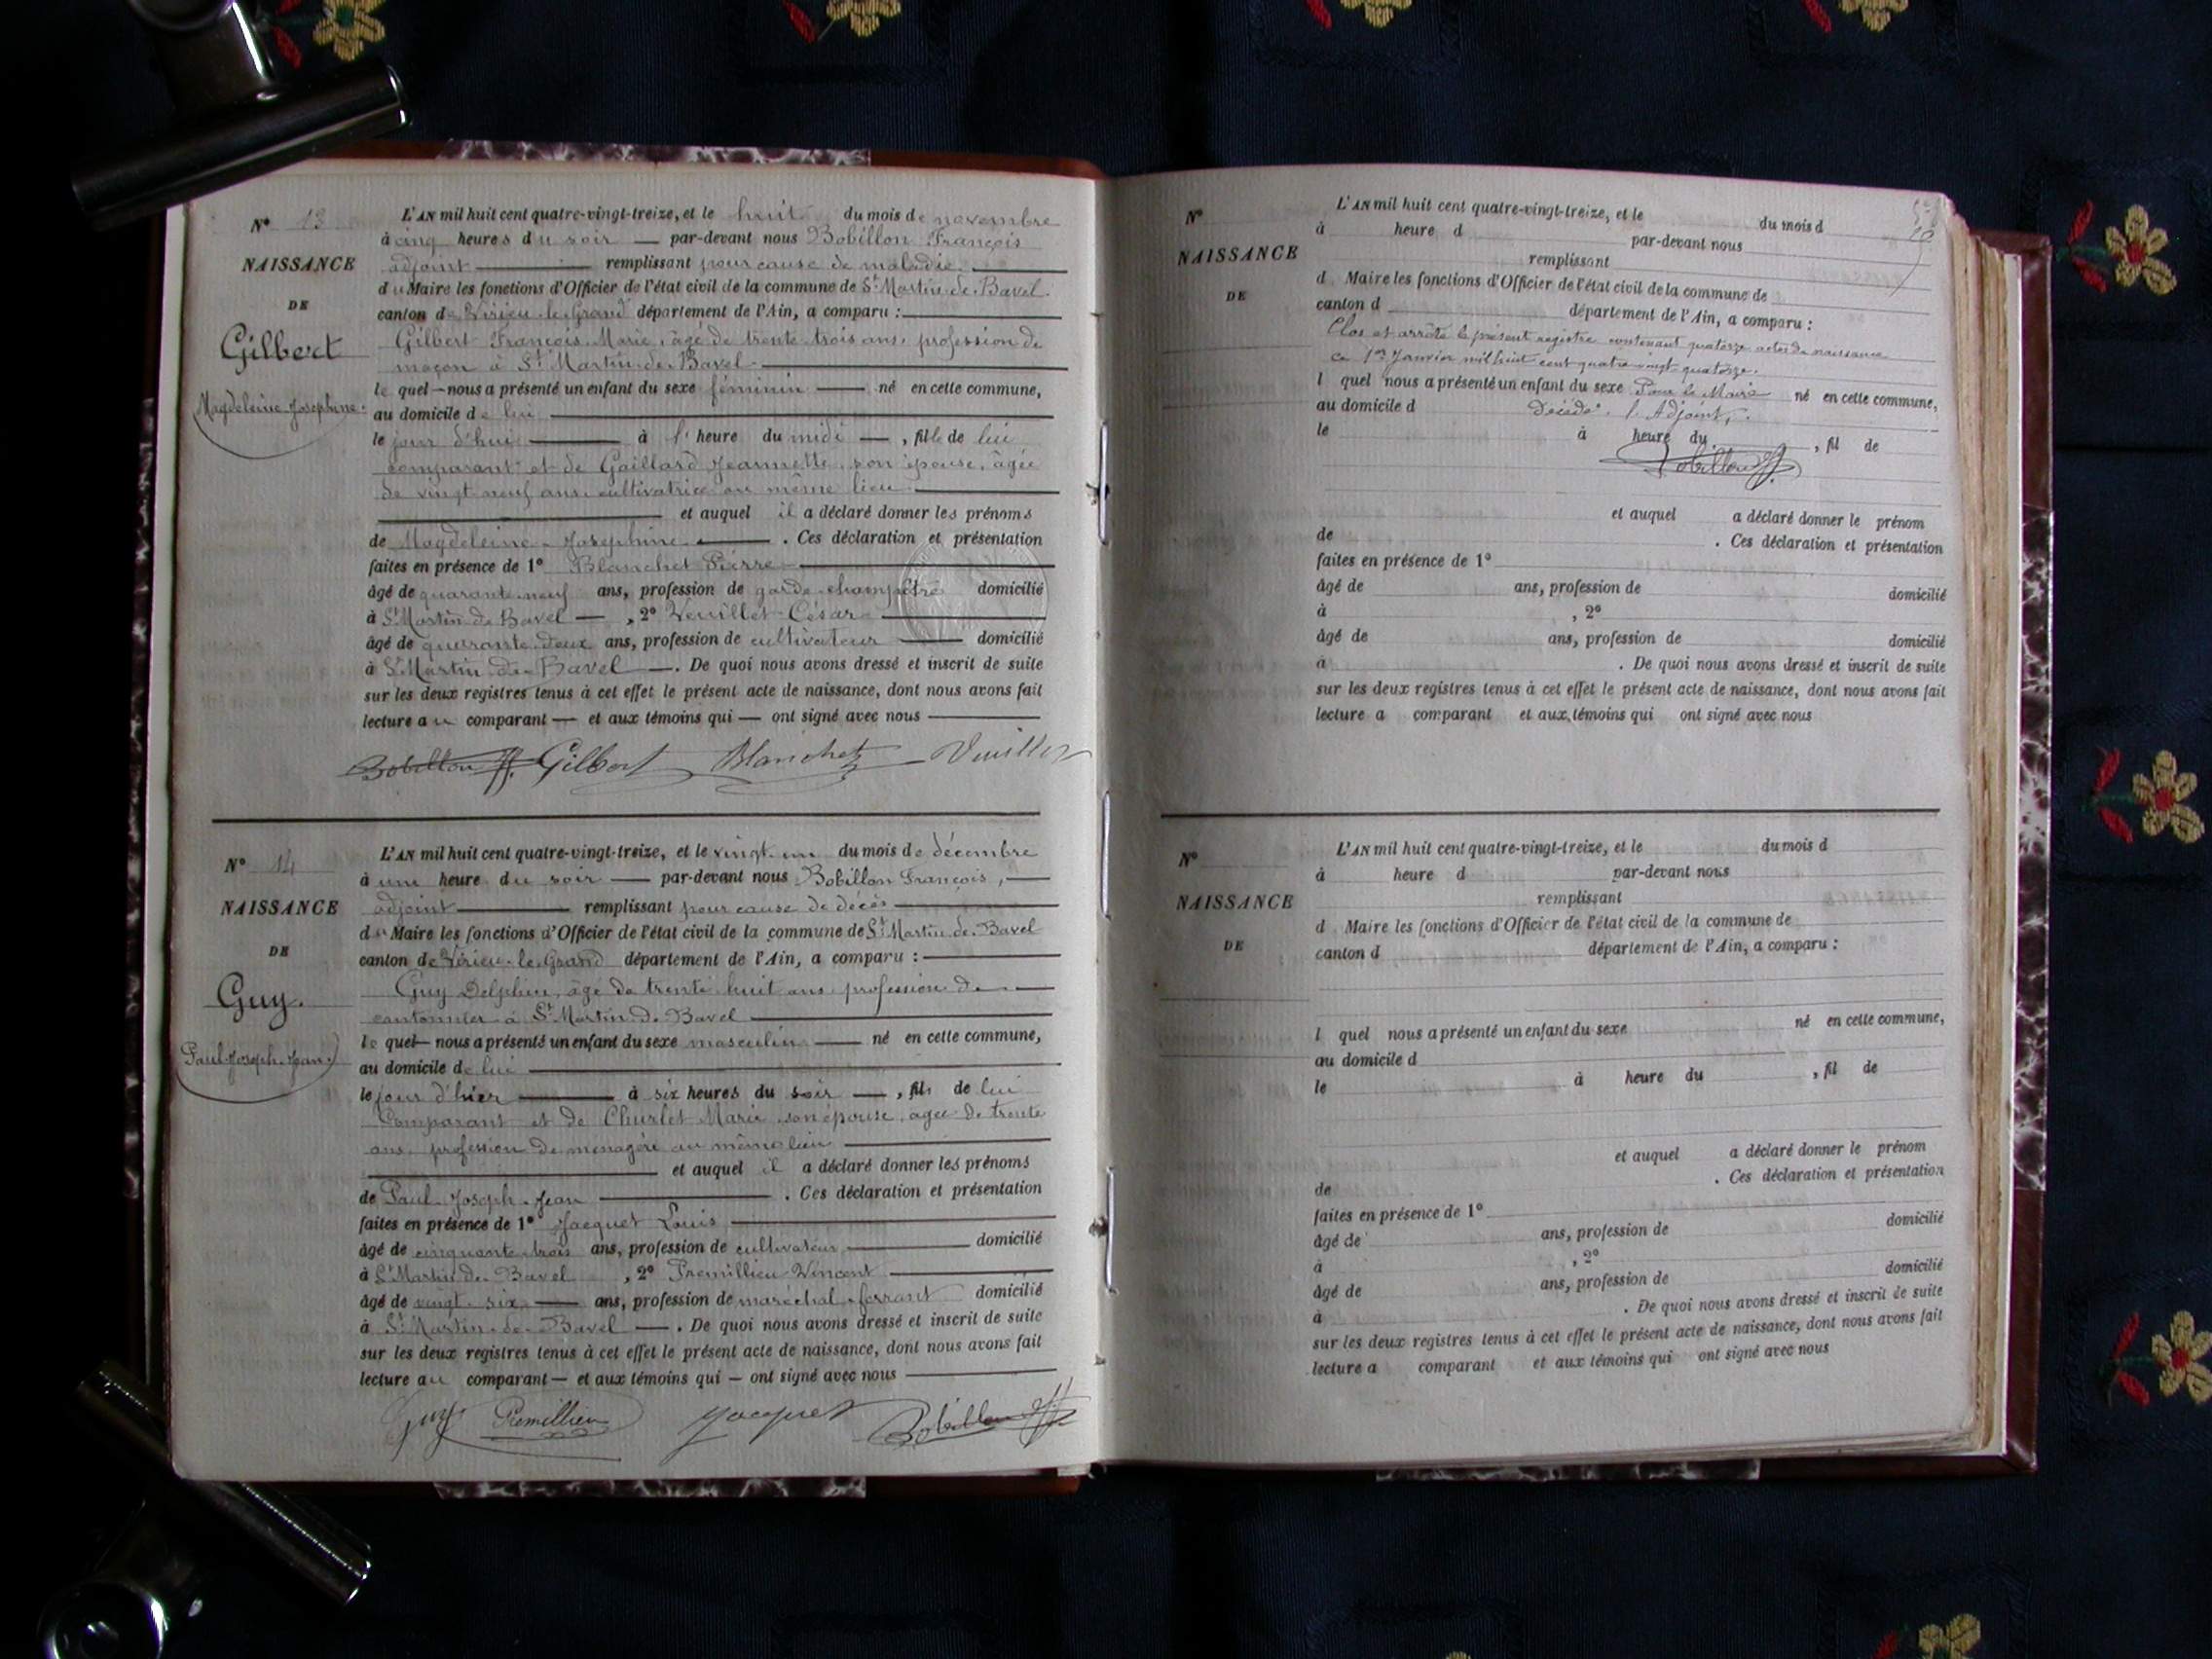 N° 13
NAISSANCE
DE
Gilbert
Magdeleine Josephine
L'AN mil huit cent quatre-vingt-treize, et le huit du mois de novembre
à cinq heures du soir — par-devant nous Bobillon François
adjoint — remplissant pour cause de maladie
du Maire les fonctions d'Officier de l'état civil de la commune de St Martin-de-Bavel
canton de Virieu-le-Grand département de l'Ain, a comparu :
Gilbert François Marie, âgé de trente trois ans, profession de
maçon à St Martin-de-Bavel
le quel — nous a présenté un enfant du sexe féminin — né en cette commune,
au domicile de lui
le jour d'hui — à 1 heure du midi —, fille de lui
comparant et de Gaillard Jeannette, son épouse, âgée
de vingt neuf ans, cultivatrice au même lieu
et auquel il a déclaré donner les prénoms
de Magdeleine-Josephine — . Ces déclaration et présentation
faites en présence de 1° Blanchet Pierre
âgé de quarante-neuf ans, profession de garde champêtre domicilié
à St Martin de Bavel —, 2° Veuillet César
âgé de quarante deux ans, profession de cultivateur — domicilié
à St Martin-de-Bavel —. De quoi nous avons dressé et inscrit de suite
sur les deux registres tenus à cet effet le présent acte de naissance, dont nous avons fait
lecture au comparant — et aux témoins qui — ont signé avec nous
Bobillon Gilbert Blanchet Vuillet
N° 14
NAISSANCE
DE
Guy.
Paul-Joseph-Jean
L'AN mil huit cent quatre-vingt-treize, et le vingt-un du mois de décembre
à une heure du soir — par-devant nous Bobillon François,
adjoint — remplissant pour cause de décès
du Maire les fonctions d'Officier de l'état civil de la commune de St Martin-de-Bavel
canton de Virieu-le-Grand département de l'Ain, a comparu :
Guy Delphin, âgé de trente huit ans profession de
cantonnier à St Martin-de-Bavel
le quel — nous a présenté un enfant du sexe masculin — né en cette commune,
au domicile de lui
le jour d'hier — à six heures du soir —, fils de lui
Comparant et de Churlet Marie, son épouse, agée de trente
ans, profession de ménagère au même lieu
et auquel il a déclaré donner les prénoms
de Paul-Joseph-Jean — . Ces déclaration et présentation
faites en présence de 1° Jacquet Louis
âgé de cinquante-trois ans, profession de cultivateur — domicilié
à St Martin-de-Bavel, 2° Premillieu Vincent
âgé de vingt-six — ans, profession de maréchal-ferrant domicilié
à St Martin-de-Bavel —. De quoi nous avons dressé et inscrit de suite
sur les deux registres tenus à cet effet le présent acte de naissance, dont nous avons fait
lecture au comparant — et aux témoins qui — ont signé avec nous
Guy Premillieu Jacquet Bobillon
N°
NAISSANCE
DE
L'AN mil huit cent quatre-vingt-treize, et le du mois d
à heure d par-devant nous
remplissant
d Maire les fonctions d'Officier de l'état civil de la commune de
canton d département de l'Ain, a comparu :
Clos et arrêté le présent registre contenant quatorze actes de naissance
ce 1er Janvier mil huit cent quatre-vingt quatorze.
l quel nous a présenté un enfant du sexe Pour le Maire né en cette commune,
au domicile d décédé. l'Adjoint,
le à heure du , fil de
Bobillon
et auquel a déclaré donner le prénom
de . Ces déclaration et présentation
faites en présence de 1°
âgé de ans, profession de domicilié
à , 2°
âgé de ans, profession de domicilié
à . De quoi nous avons dressé et inscrit de suite
sur les deux registres tenus à cet effet le présent acte de naissance, dont nous avons fait
lecture a comparant et aux témoins qui ont signé avec nous
N°
NAISSANCE
DE
L'AN mil huit cent quatre-vingt-treize, et le du mois d
à heure d par-devant nous
remplissant
d Maire les fonctions d'Officier de l'état civil de la commune de
canton d département de l'Ain, a comparu :
l quel nous a présenté un enfant du sexe né en cette commune,
au domicile d
le à heure du , fil de
et auquel a déclaré donner le prénom
de . Ces déclaration et présentation
faites en présence de 1°
âgé de ans, profession de domicilié
à , 2°
âgé de ans, profession de domicilié
à . De quoi nous avons dressé et inscrit de suite
sur les deux registres tenus à cet effet le présent acte de naissance, dont nous avons fait
lecture a comparant et aux témoins qui ont signé avec nous